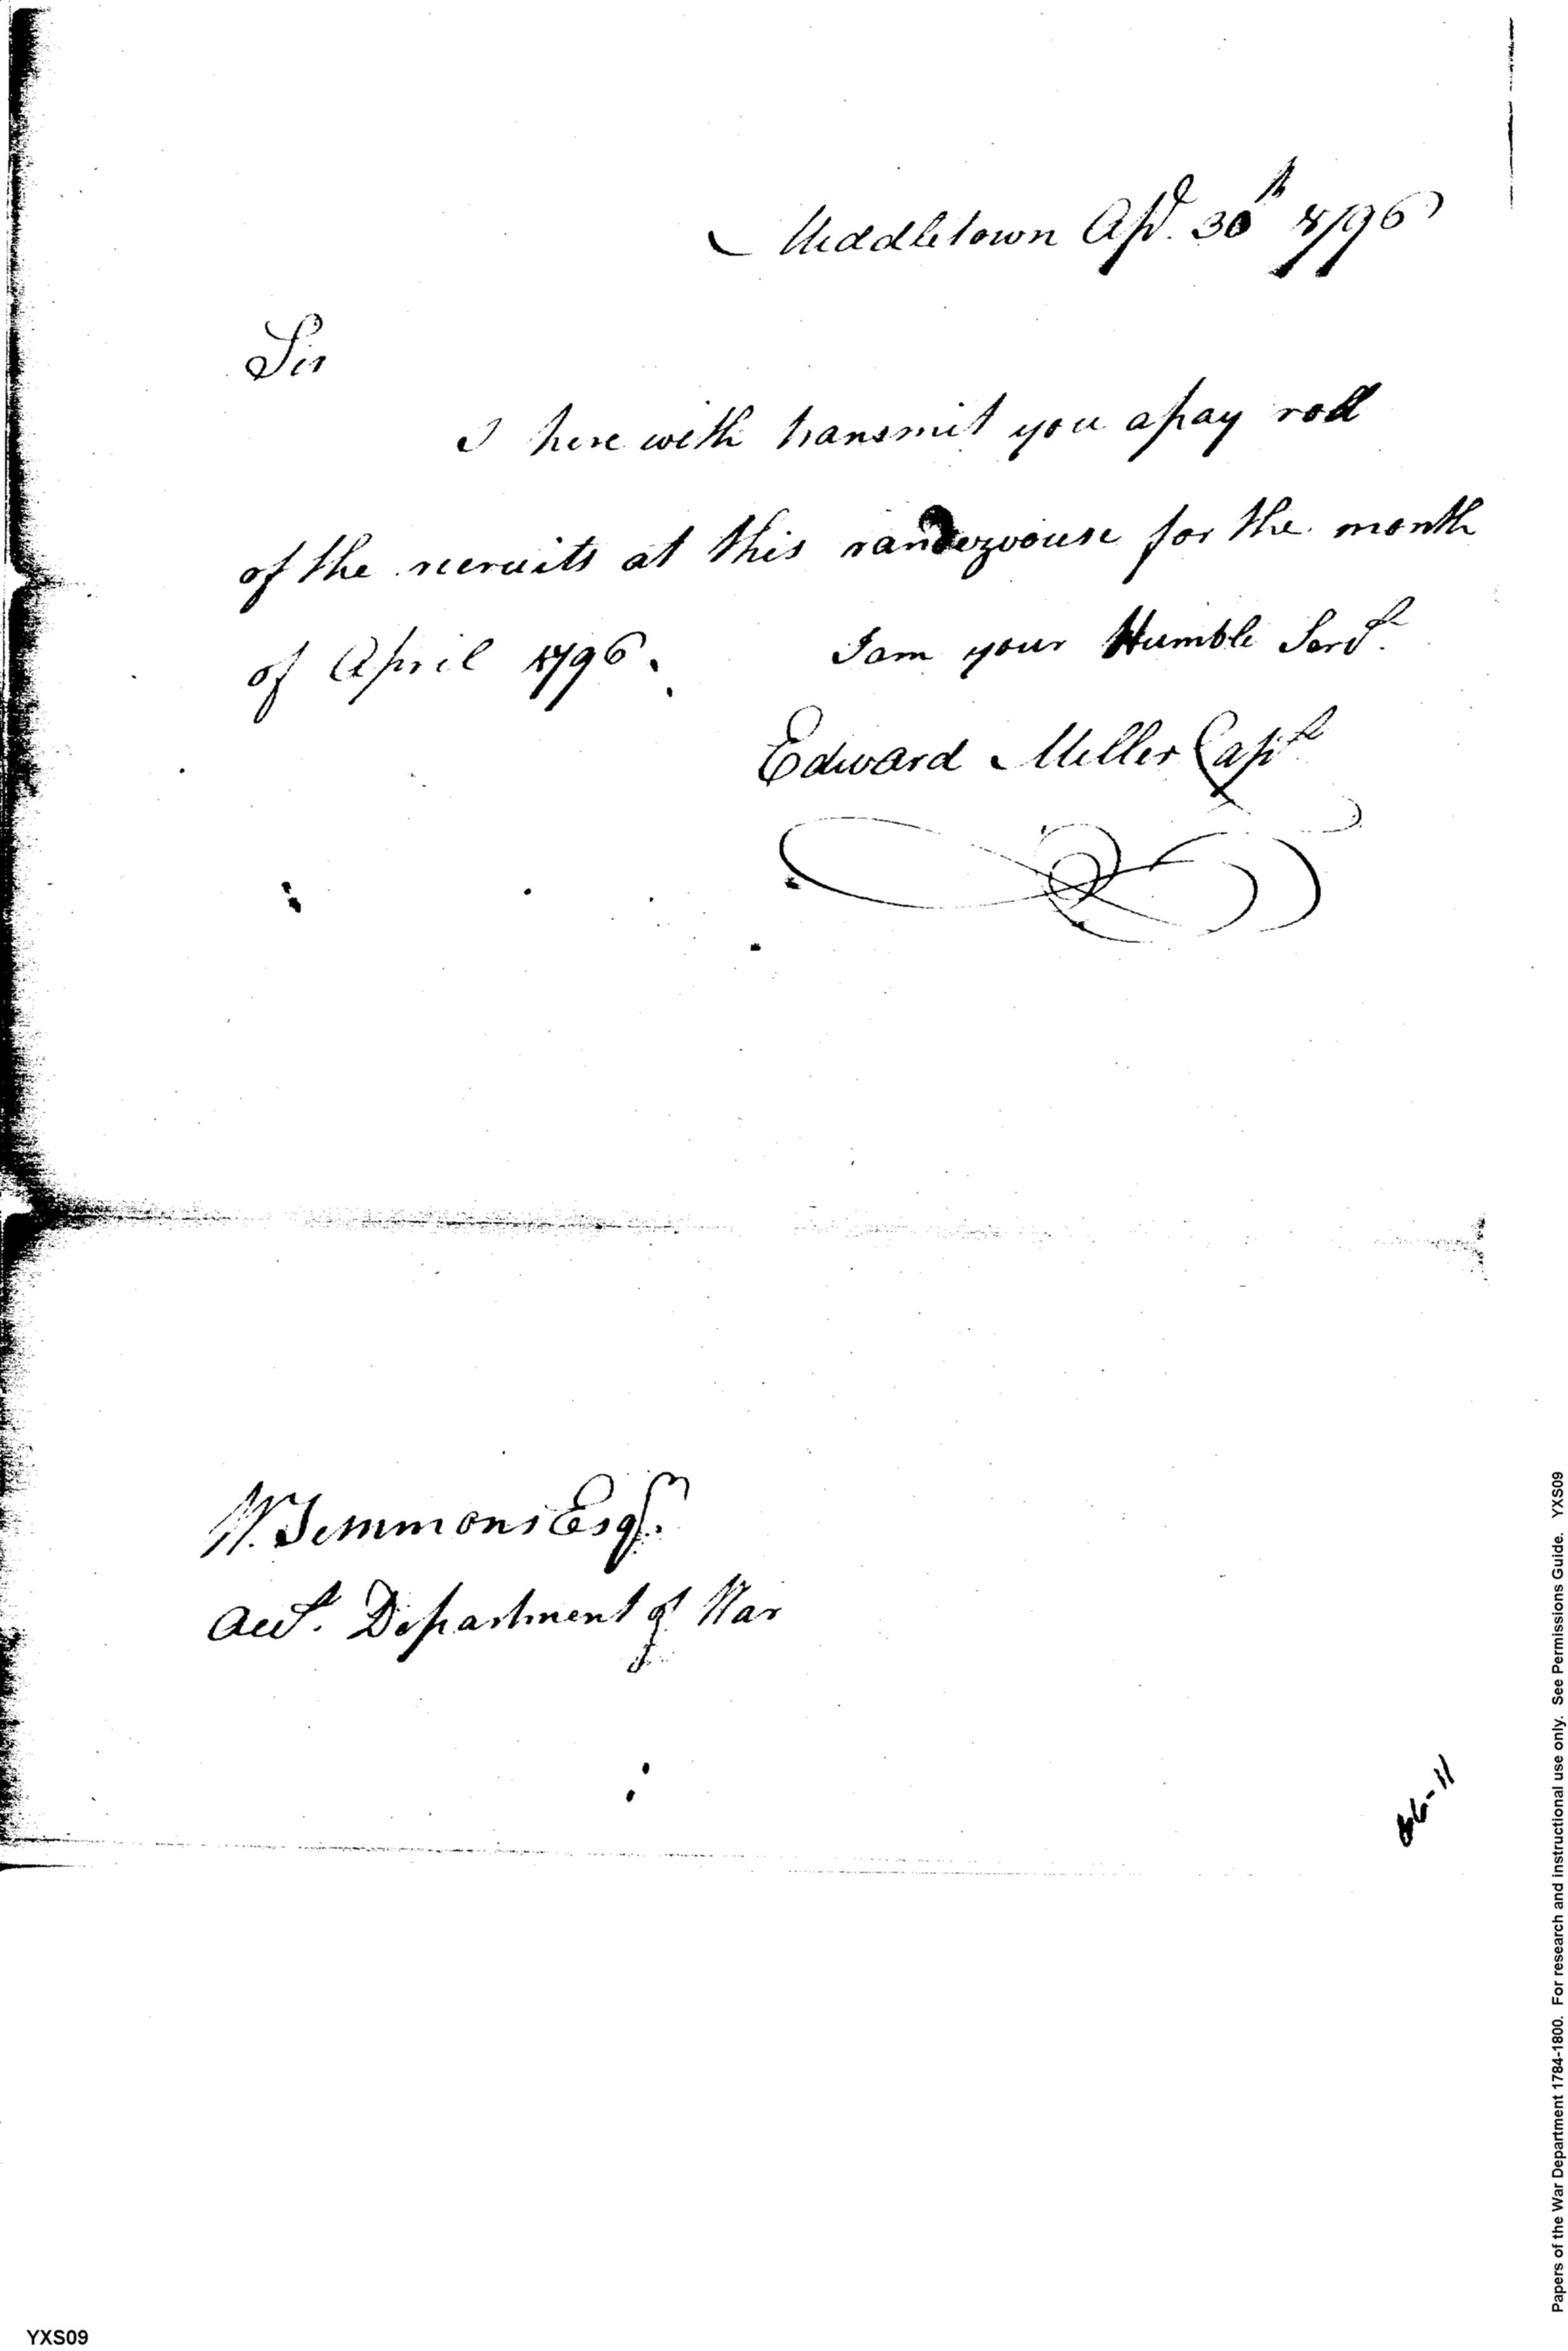 Middletown Apl. 30th 1796
Sir
I here with transmit you a pay roll
of the recruits at this randezvouse for the month
of April 1796. I am your Humble Servt.
Edward Miller Capt
W. Simmons Esqr.
Acct. Department of War
86-11
Papers of the War Department 1784-1800. For research and instructional use only. See Permissions Guide. YXS09
YXS09